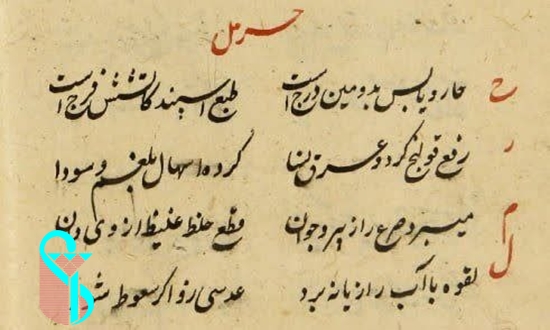 حرمل
ح حار و یابس بدومین درج است طبع اسپند کاتشش فرج است
ر رفع قولنج کرد و عرق نسا کرده اسهال بلغم و سودا
م میبرد صرع را ز پیر و جوان قطع خلط غلیظ از وی دان
ل لقوه با آب رازیانه برد عدسی زو اگر سعوط شود